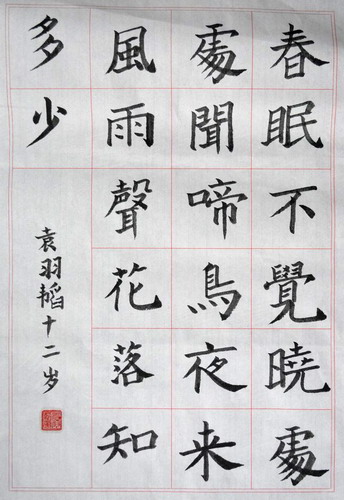 春眠不覺曉處
處聞啼鳥夜来
風雨聲花落知
多少
袁羽韬十二岁